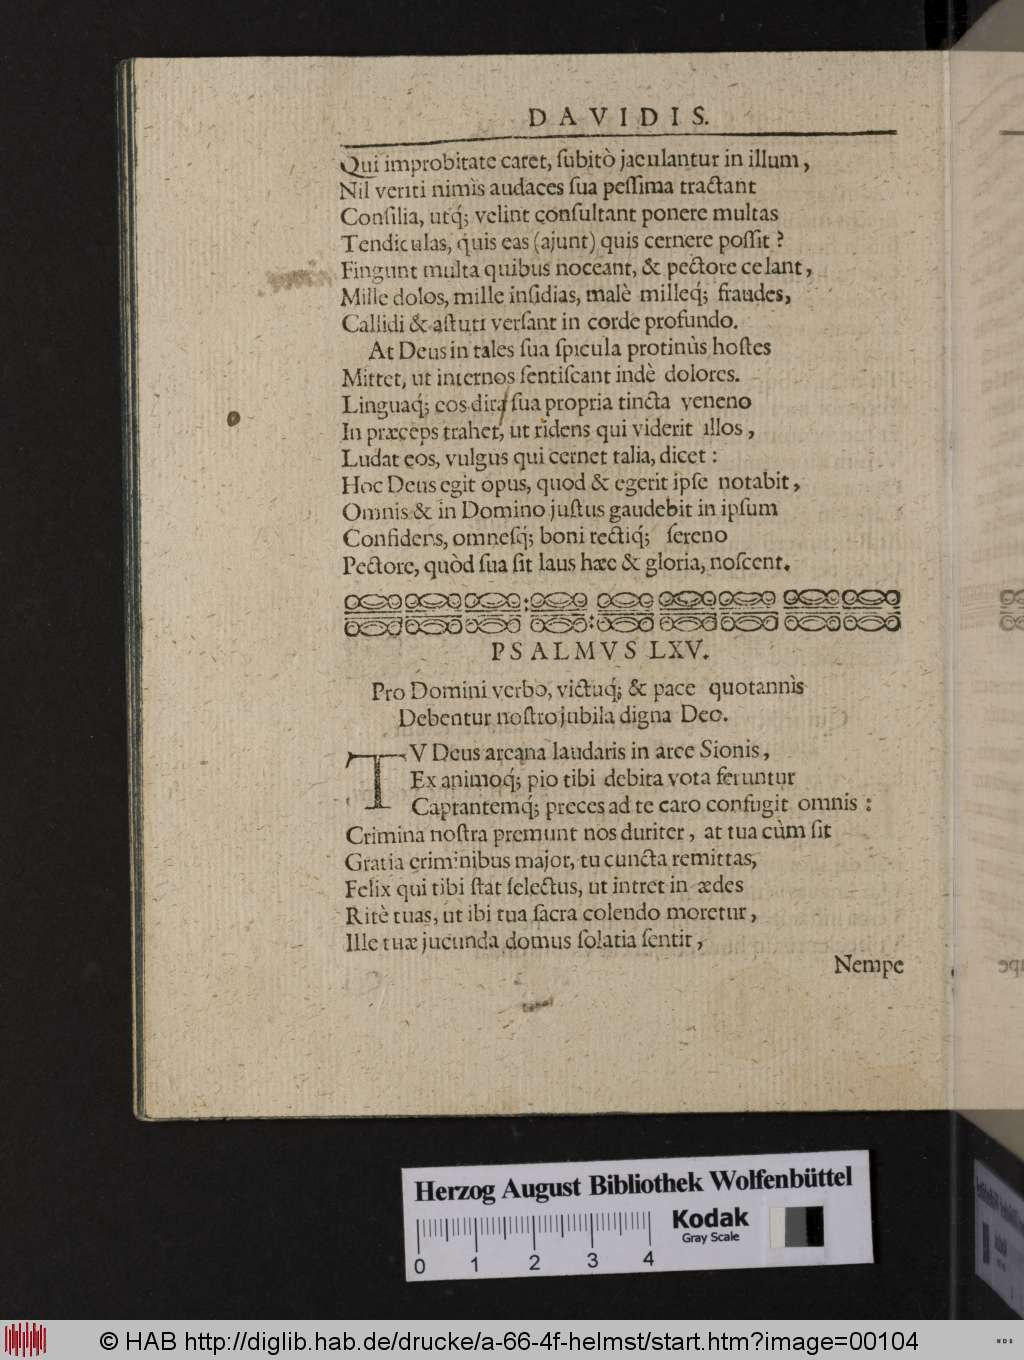 DAVIDIS.
Qui improbitate caret, ſubitò jaculantur in illum,
Nil veriti nimìs audaces ſua peſſima tractant
Conſilia, utq́; velint conſultant ponere multas
Tendiculas, quis eas (ajunt) quis cernere poſſit?
Fingunt multa quibus noceant, & pectore celant,
Mille dolos, mille inſidias, malè milleq́; fraudes,
Callidi & aſtuti verſant in corde profundo.
At Deus in tales ſua ſpicula protinùs hoſtes
Mittet, ut internos ſentiſcant indè dolores.
Linguaq́; eos dira ſua propria tincta veneno
In præceps trahet, ut ridens qui viderit illos,
Ludat eos, vulgus qui cernet talia, dicet:
Hoc Deus egit opus, quod & egerit ipſe notabit,
Omnis & in Domino juſtus gaudebit in ipſum
Confidens, omneſq́; boni rectiq́; ſereno
Pectore, quòd ſua ſit laus hæc & gloria, noſcent.
PSALMVS LXV.
Pro Domini verbo, victuq́; & pace quotannìs
Debentur noſtro jubila digna Deo.
TV Deus arcana laudaris in arce Sionis,
Ex animoq́; pio tibi debita vota feruntur
Captantemq́; preces ad te caro confugit omnis:
Crimina noſtra premunt nos duriter, at tua cùm ſit
Gratia criminibus major, tu cuncta remittas,
Felix qui tibi ſtat ſelectus, ut intret in ædes
Ritè tuas, ut ibi tua ſacra colendo moretur,
Ille tuæ jucunda domus ſolatia ſentit,
Nempe
Herzog August Bibliothek Wolfenbüttel
Kodak
Gray Scale
0 1 2 3 4
© HAB http://diglib.hab.de/drucke/a-66-4f-helmst/start.htm?image=00104